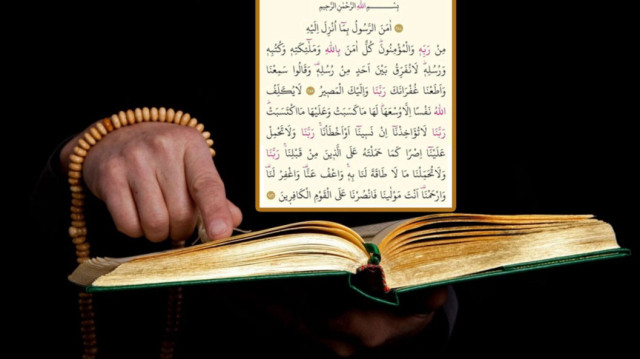 بِسْــــمِ اللهِ الرَّحْمٰنِ الرَّحِيمِ
اٰمَنَ الرَّسُولُ بِمَٓا اُنْزِلَ اِلَيْهِ
مِنْ رَبِّهٖ وَالْمُؤْمِنُونَۜ كُلٌّ اٰمَنَ بِاللهِ وَمَلٰٓئِكَتِهٖ وَكُتُبِهٖ
وَرُسُلِهٖۜ لَانُفَرِّقُ بَيْنَ اَحَدٍ مِنْ رُسُلِهٖۜ وَقَالُوا سَمِعْنَا
وَاَطَعْنَا غُفْرَانَكَ رَبَّنَا وَاِلَيْكَ الْمَصِيرُ لَايُكَلِّفُ
اللهُ نَفْسًا اِلَّاوُسْعَهَاۜ لَهَا مَاكَسَبَتْ وَعَلَيْهَا مَااكْتَسَبَتْۜ
رَبَّنَا لَاتُؤَاخِذْنَٓا اِنْ نَسِينَٓا اَوْاَخْطَأْنَاۚ رَبَّنَا وَلَاتَحْمِلْ
عَلَيْنَٓا اِصْرًا كَمَا حَمَلْتَهُ عَلَى الَّذِينَ مِنْ قَبْلِنَاۚ رَبَّنَا
وَلَاتُحَمِّلْنَا مَا لَا طَاقَةَ لَنَا بِهٖۚ وَاعْفُ عَنَّا۠ وَاغْفِرْ لَنَا۠
وَارْحَمْنَا۠ اَنْتَ مَوْلٰينَا فَانْصُرْنَا عَلَى الْقَوْمِ الْكَافِرِينَ